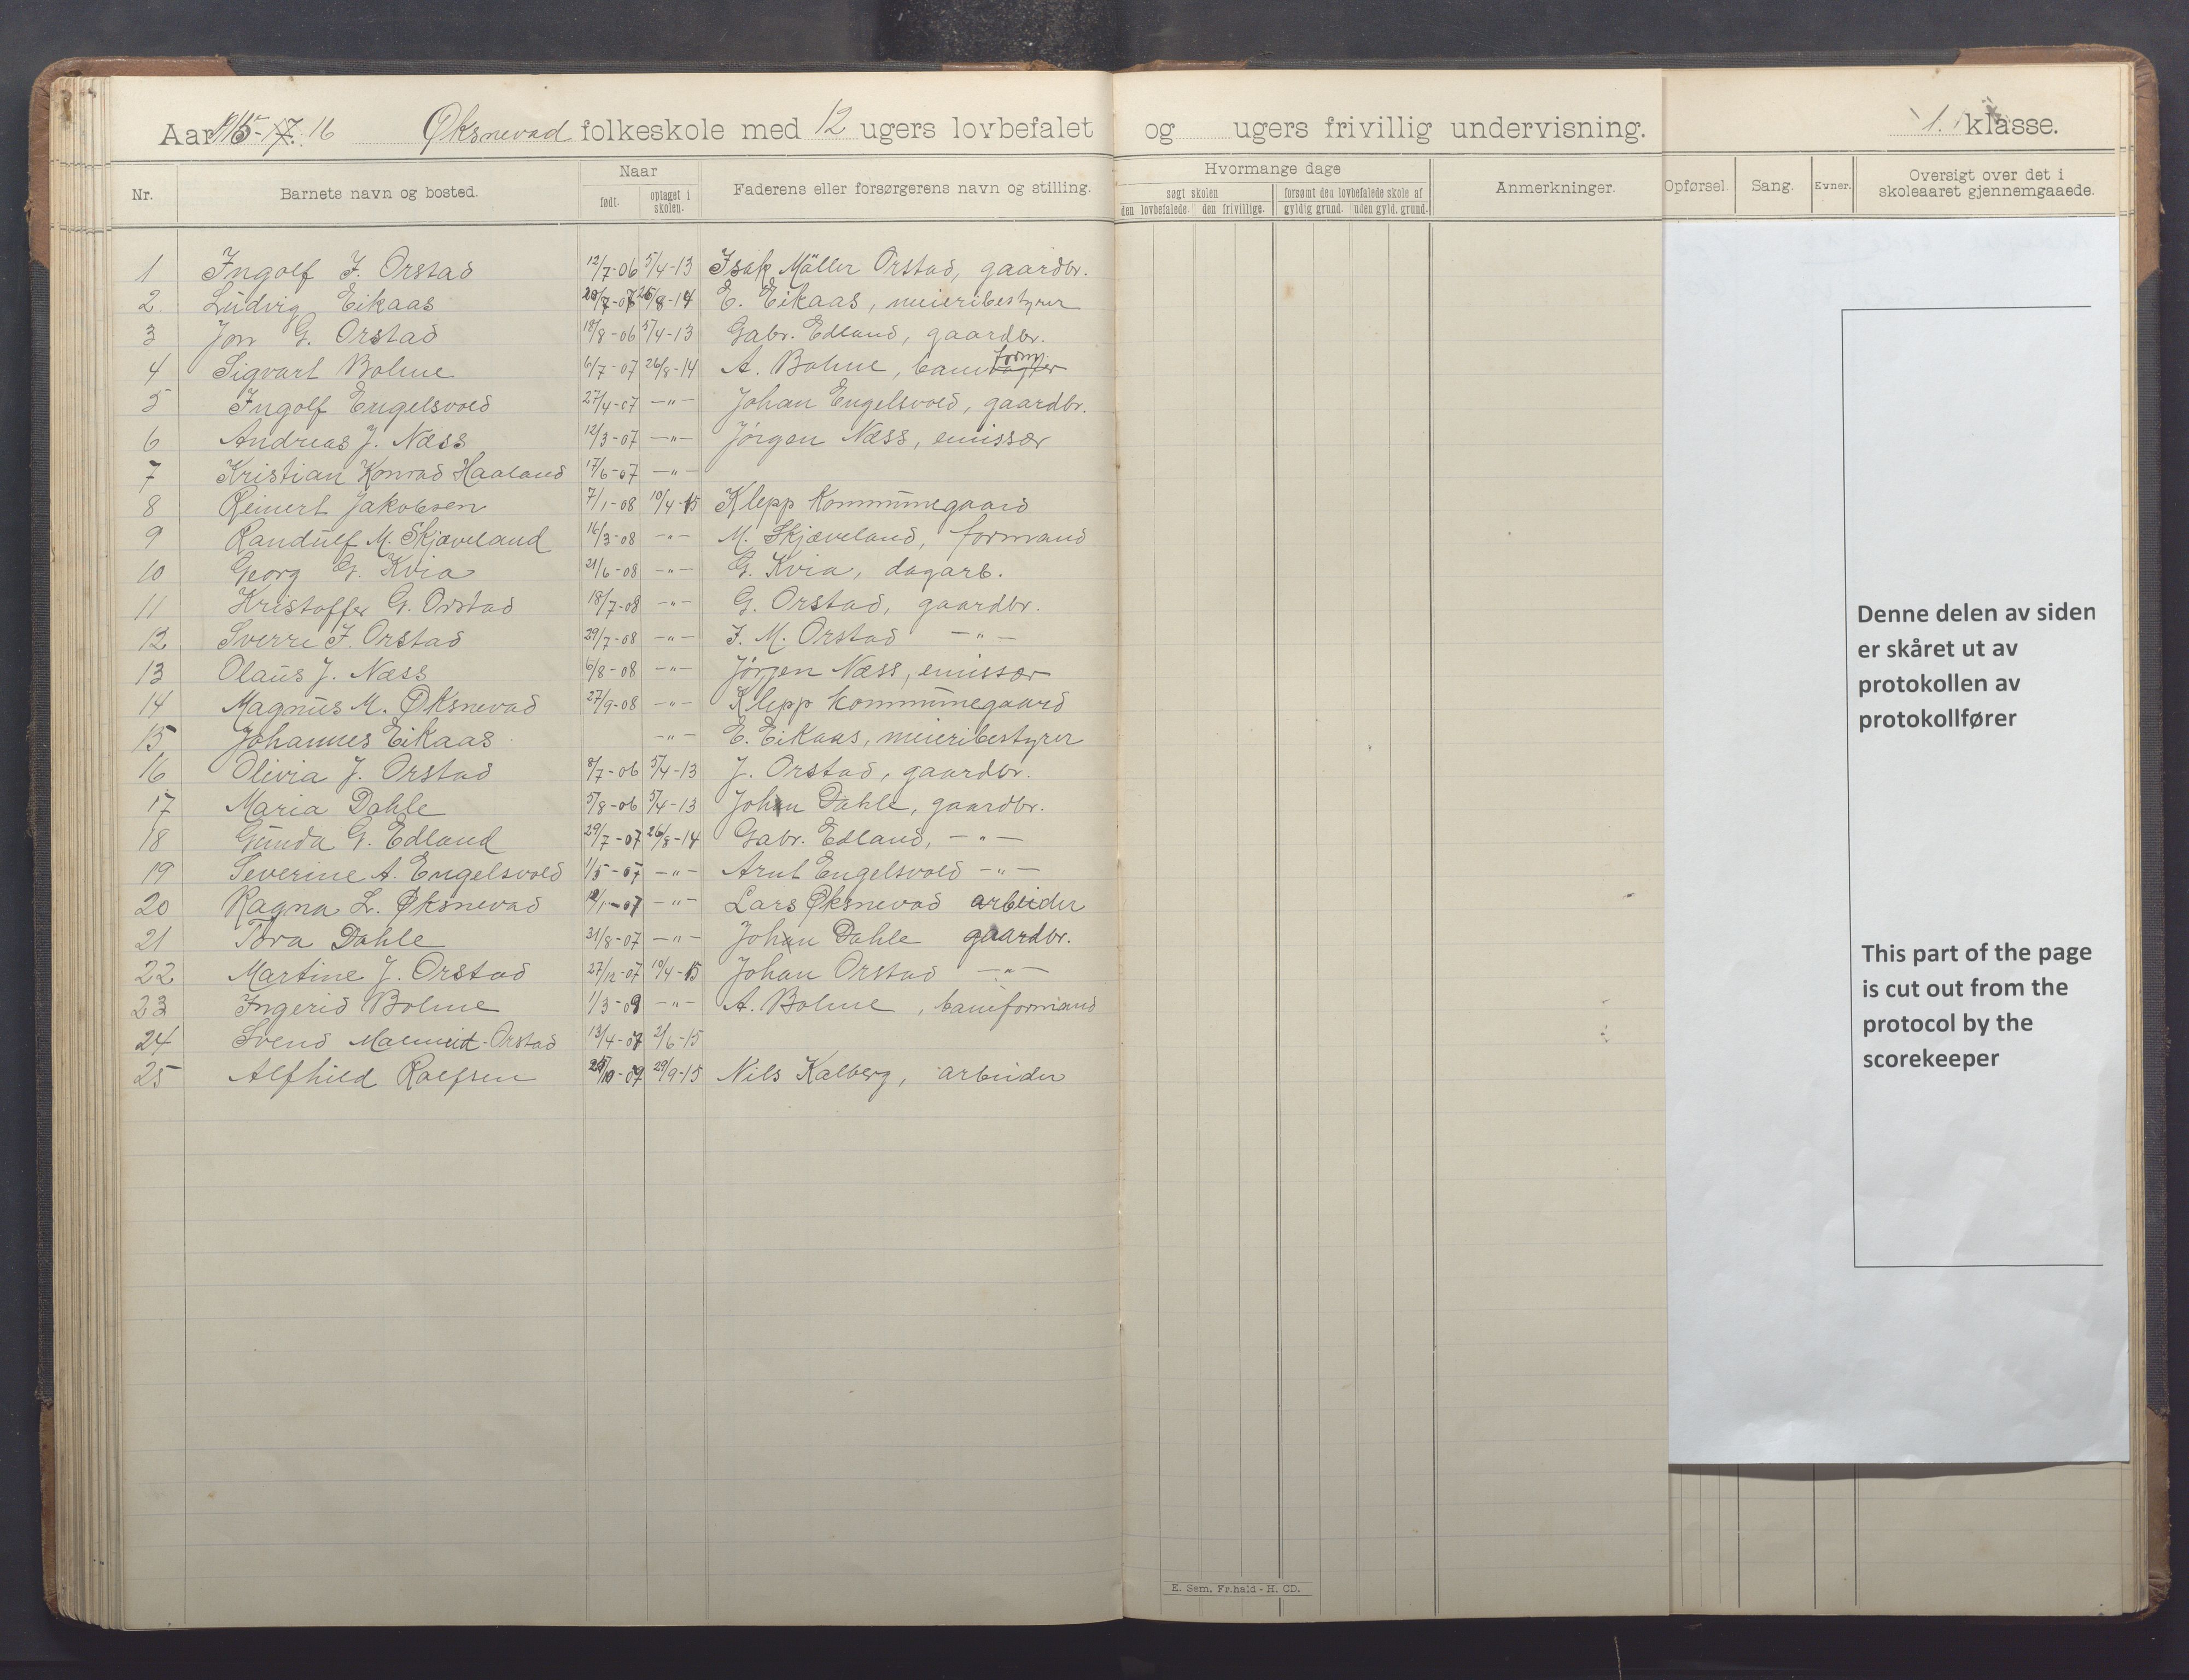 Aar 1915-17. 16 Øksnevad folkeskole med 12 ugers lovbefalet og ugers frivillig undervisning. 1. klasse.
Nr. Barnets navn og bosted. Naar født. optaget i skolen. Faderens eller forsørgerens navn og stilling. Hvormange dage søgt skolen den lovbefalede. den frivillige. forsømt den lovbefalede skole af gyldig grund. uden gyld. grund. Anmerkninger. Opførsel. Sang. Evner. Oversigt over det i skoleaaret gjennemgaaede.
1 Ingolf I. Orstad 12/7-06 5/4-13 Isak Möller Orstad, gaardbr.
2. Ludvig Eikaas 26/8-14 E. Eikaas, meieribestyrer
3 Jon G. Orstad 18/8-06 5/4-13 Gabr. Edland, gaardbr.
4 Sigvart Bolme 6/7-07 26/8-14 A. Bolme, baneform.
5 Ingolf Engelsvold 27/4-07 -"- Johan Engelsvold, gaardbr.
6 Andreas J. Næss 12/3-07 -"- Jörgen Næss, emissær
7 Kristian Konrad Haaland 17/6-07 -"-
8 Reinert Jakobsen 7/1-08 10/4-15 Klepp kommunegaard
9 Randulf M. Skjæveland 16/3-08 -"- M. Skjæveland, formand
10 Georg G. Kvia 21/6-08 -"- G. Kvia, dagarb.
11 Kristoffer G. Orstad 18/7-08 -"- G. Orstad, gaardbr.
12 Sverre I. Orstad 29/7-08 -"- I. M. Orstad -"-
13 Olaus J. Næss 6/8-08 -"- Jörgen Næss, emissær
14 Magnus M. Øksnevad 27/9-08 -"- Klepp kommunegaard
15 Johannes Eikaas -"- E. Eikaas, meieribestyrer
16 Olivia J. Orstad 8/7-06 5/4-13 J. Orstad, gaardbr.
17 Maria Dahle 5/8-06 5/4-13 Johan Dahle, gaardbr.
18 Gunda G. Edland 29/7-07 26/8-14 Gabr. Edland, -"-
19 Severine A. Engelsvold 1/5-07 -"- Arnt Engelsvold -"-
20 Ragna L. Øksnevad -"- Lars Øksnevad arbeider
21 Tora Dahle 31/8-07 -"- Johan Dahle gaardbr.
22 Martine J. Orstad 27/12-07 10/4-15 Johan Orstad -"-
23 Ingerid Bolme 1/3-09 -"- A. Bolme, baneformand
24 Svend Orstad 13/4-07 2/6-15
25 Alfhild Rolfsen 29/9-15 Nils Kalberg, arbeider
E. Sem. Fr.hald - H. CD.
Denne delen av siden
er skåret ut av
protokollen av
protokollfører
This part of the page
is cut out from the
protocol by the
scorekeeper